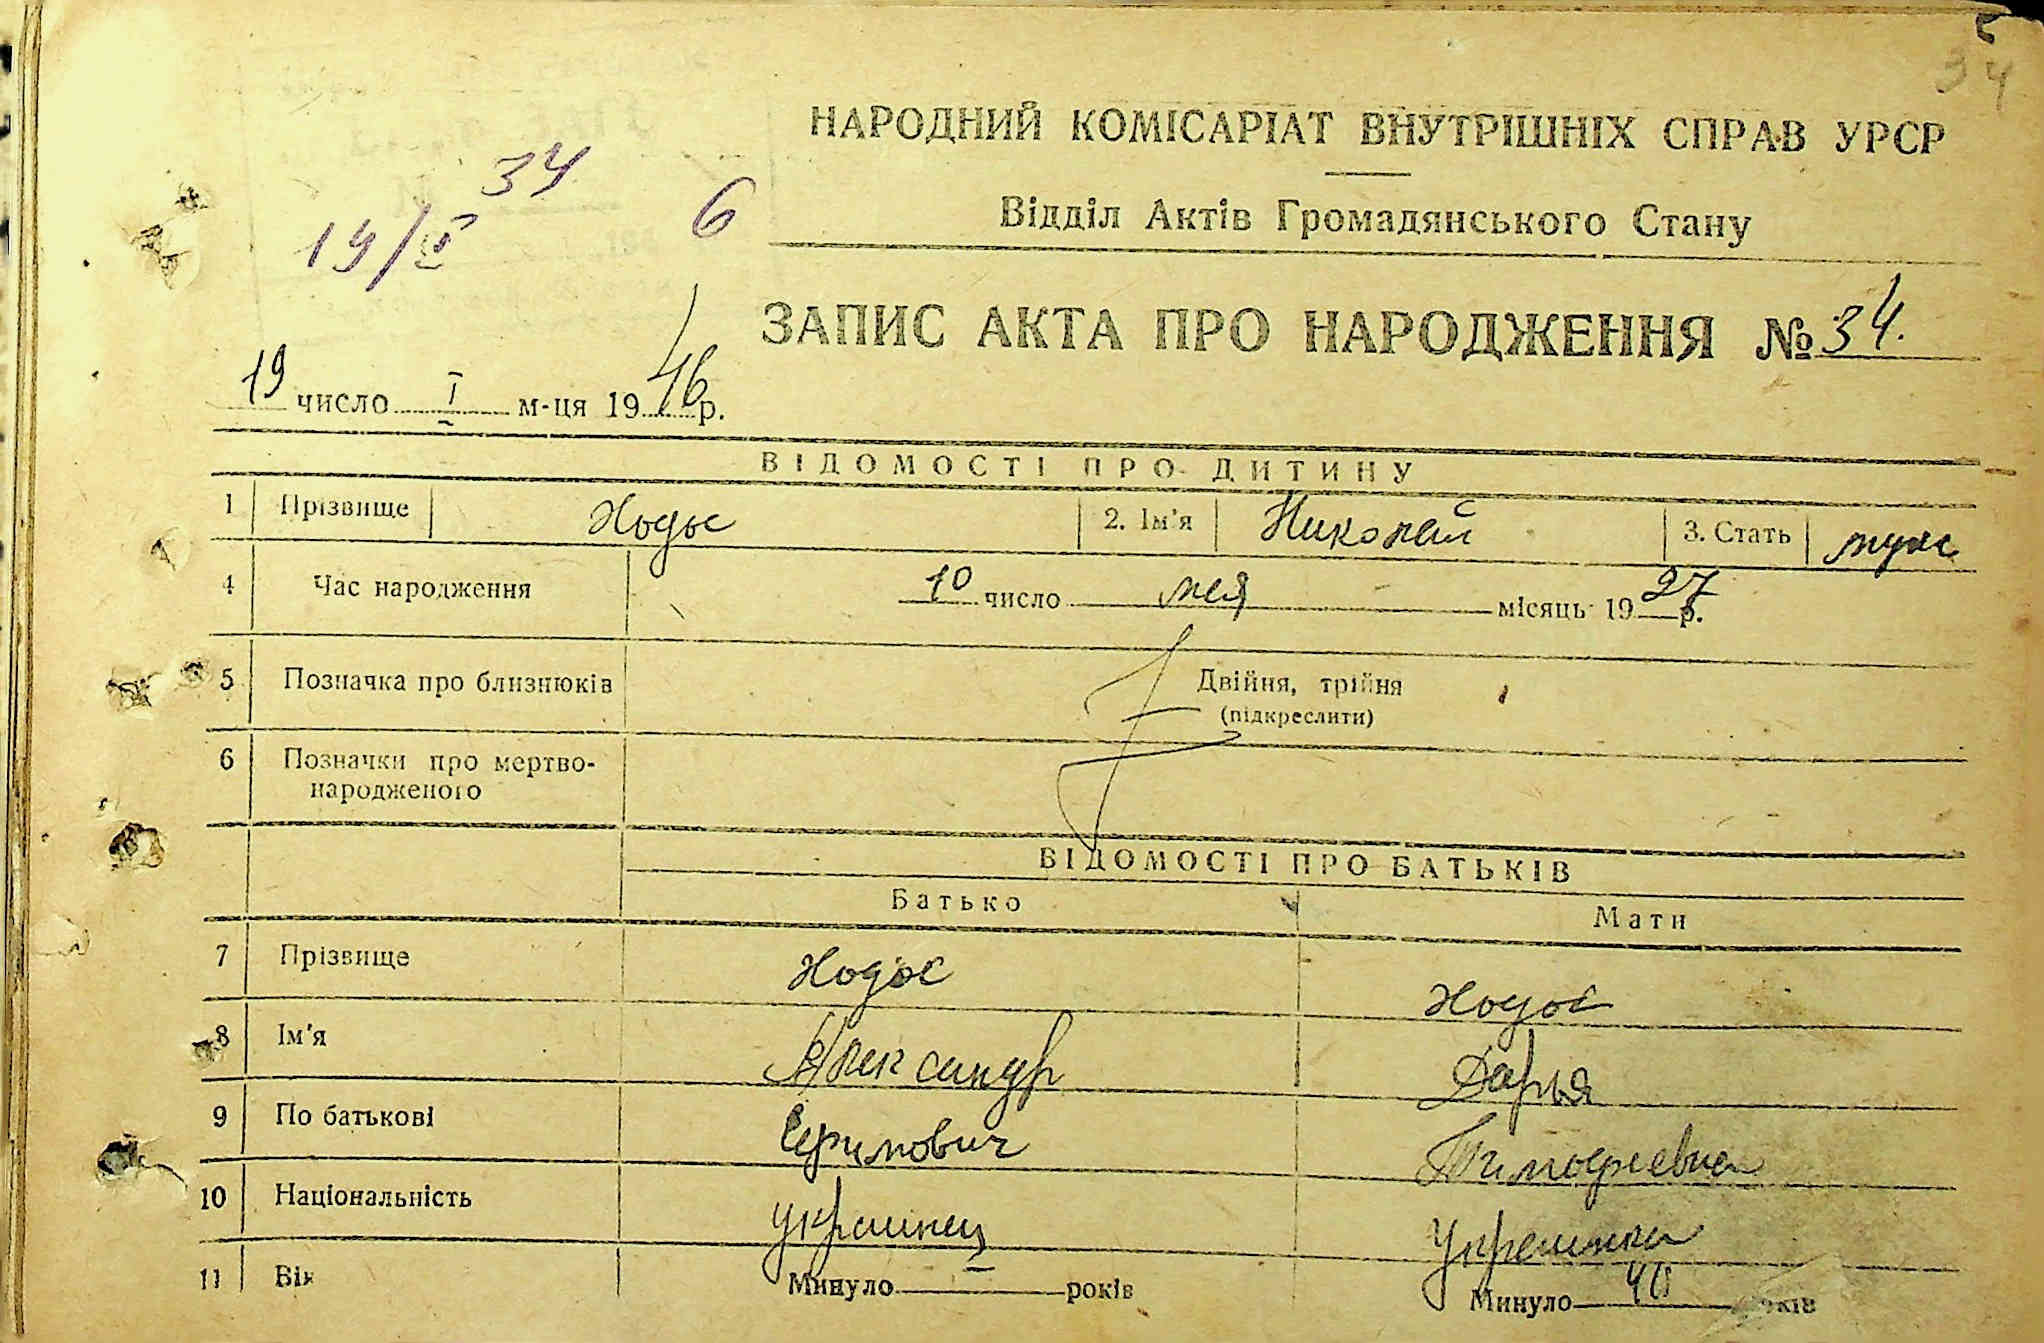 34
34
19/I
6
НАРОДНИЙ КОМІСАРІАТ ВНУТРІШНІХ СПРАВ УРСР
Відділ Актів Громадянського Стану
ЗАПИС АКТА ПРО НАРОДЖЕННЯ № 34.
19 число I м-ця 1946 р.
ВІДОМОСТІ ПРО ДИТИНУ
1 Прізвище Ходос 2. Ім'я Николай 3. Стать муж
4 Час народження 10 число мая місяць 1927 р.
5 Позначка про близнюків Двійня, трійня
(підкреслити)
6 Позначки про мертво-
народженого
ВІДОМОСТІ ПРО БАТЬКІВ
Батько Мати
7 Прізвище Ходос Ходос
8 Ім'я Александр Дарья
9 По батькові Тимофеевна
10 Національність украинец Украинка
11 Вік Минуло років Минуло 40 років